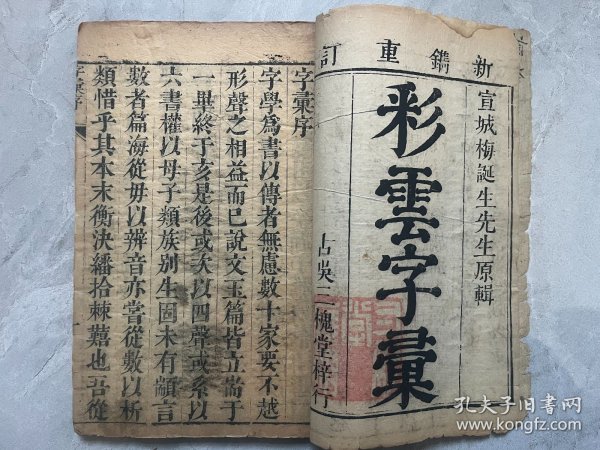 新鐫重訂
宣城梅誕生先生原輯
彩雲字彙
古吳三槐堂梓行
字彙序
字學爲書以傳者無慮數十家要不越
形聲之相益而已說文玉篇皆立耑于
一畢終于亥是後或次以四聲或系以
六書權以母子類族別生固未有顓言
數者篇海從毋以辨音亦嘗從數以析
類惜乎其本末衡決繙拾棘囏也吾從
孔夫子旧书网
www.kongfz.com